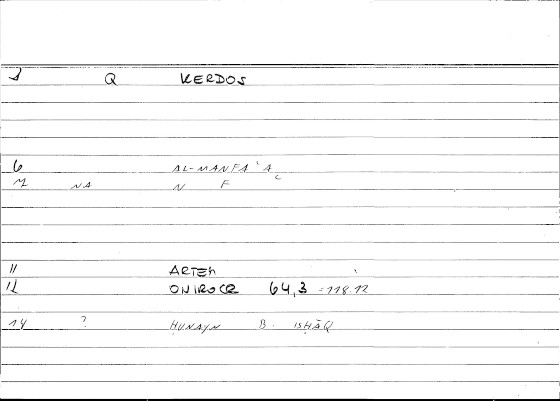 1 Q KERDOS
6 AL-MANFAʿA
M NA N F C
11 ARTEM
12 ONIROCR 64,3 =118.12
14 ? ḤUNAYN B. ISḤĀQ